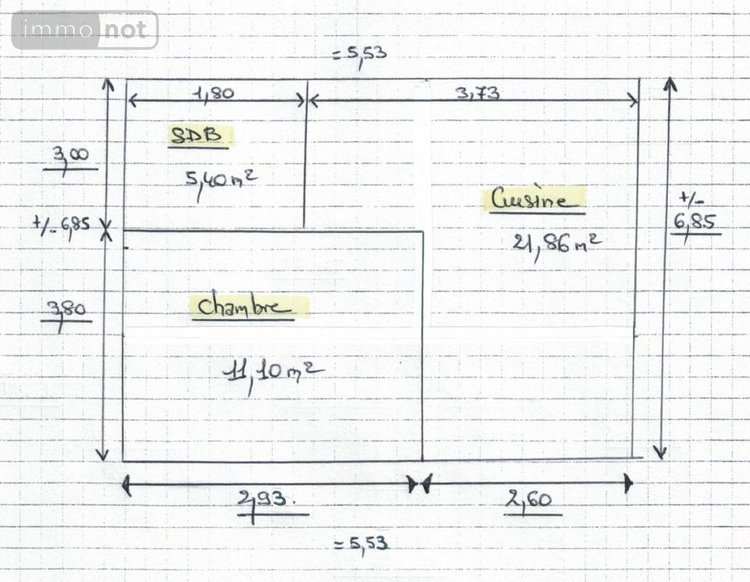 immo not
=5,53
1,80
3,73
SDB
3,00
5,40 m²
Cuisine
+/-
+/- 6,85
6,85
21,86 m²
3,80
Chambre
11,10 m²
2,93.
2,60
=5,53